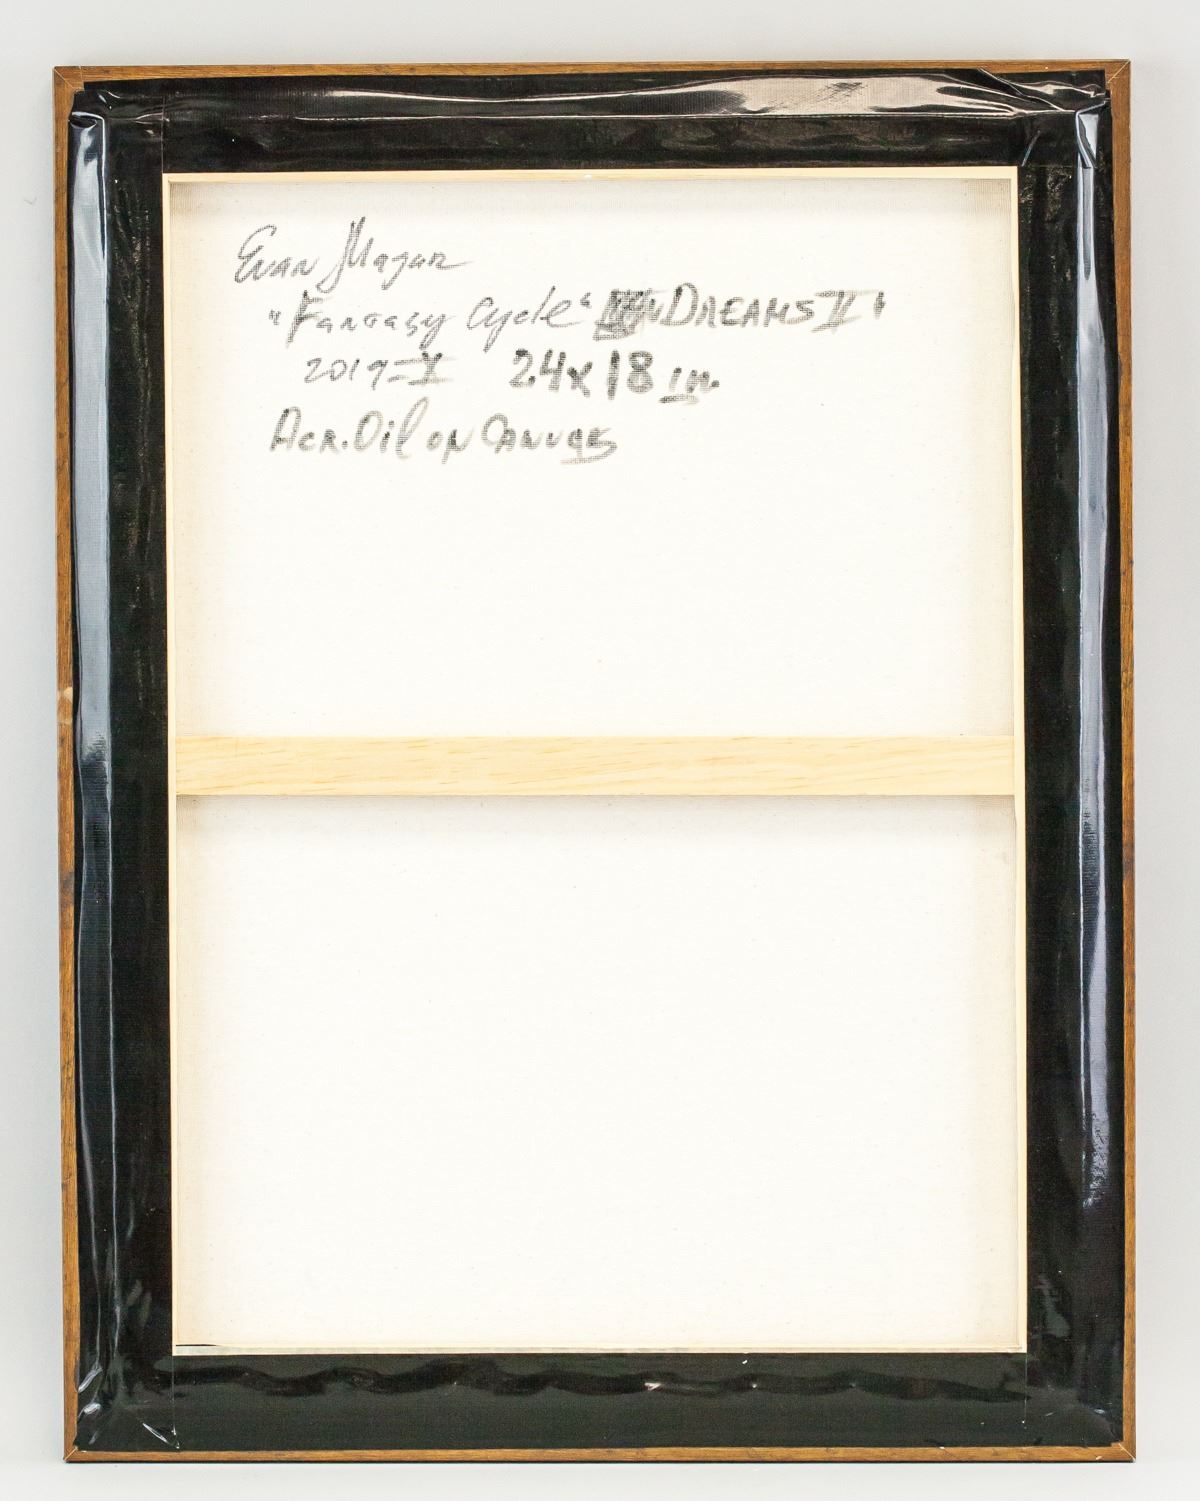 Evan Magar
"Fantasy Cycle" DREAMS II
2017-X 24x18 in.
Acr. Oil on Canvas